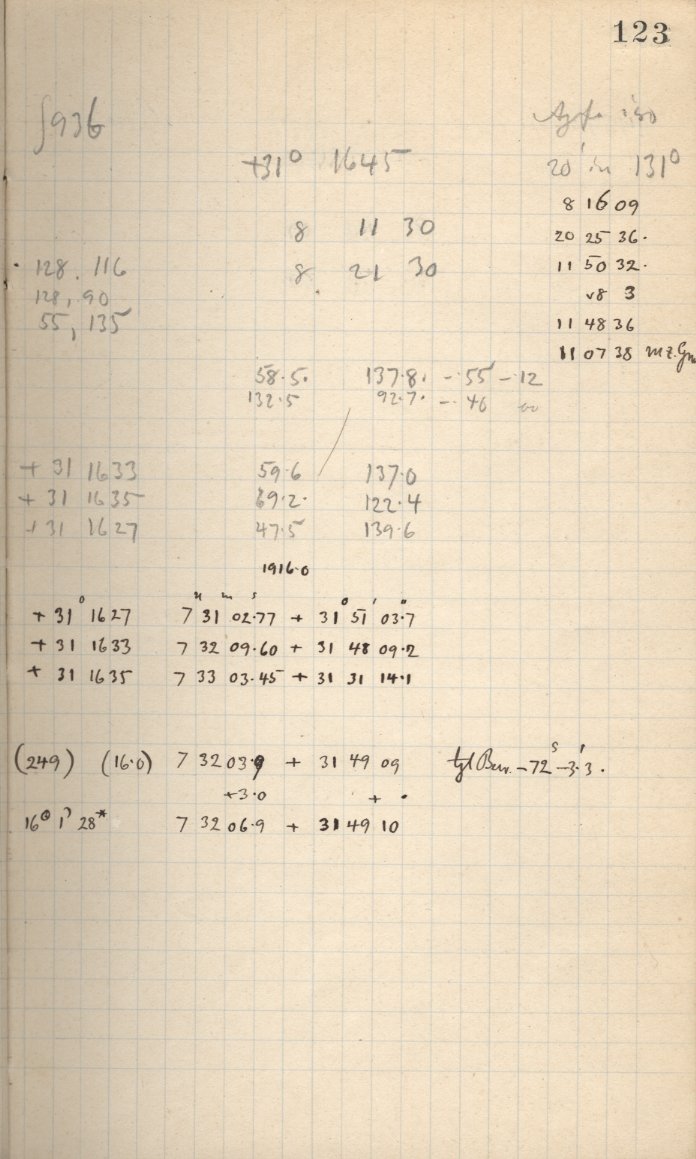 123
936
+31° 1645
20' in 131°
8 16 09
8 11 30
20 25 36.
128. 116
8 21 30
11 50 32.
128, 90
v8 3
55, 135
11 48 36
11 07 38 m.z.Gr
58.5. 137.8. - 55 - 12
132.5 92.7. - 46
+ 31 1633 59.6 137.0
+ 31 1635 69.2. 122.4
+ 31 1627 47.5 139.6
1916.0
+ 31° 1627 7 h 31 m 02.77 s + 31° 51' 03".7
+ 31 1633 7 32 09.60 + 31 48 09.2
+ 31 1635 7 33 03.45 + 31 31 14.1
(249) (16.0) 7 32 03.9 + 31 49 09 tgl Bew. -72 s -3'.3.
+3.0 + .
7 32 06.9 + 31 49 10